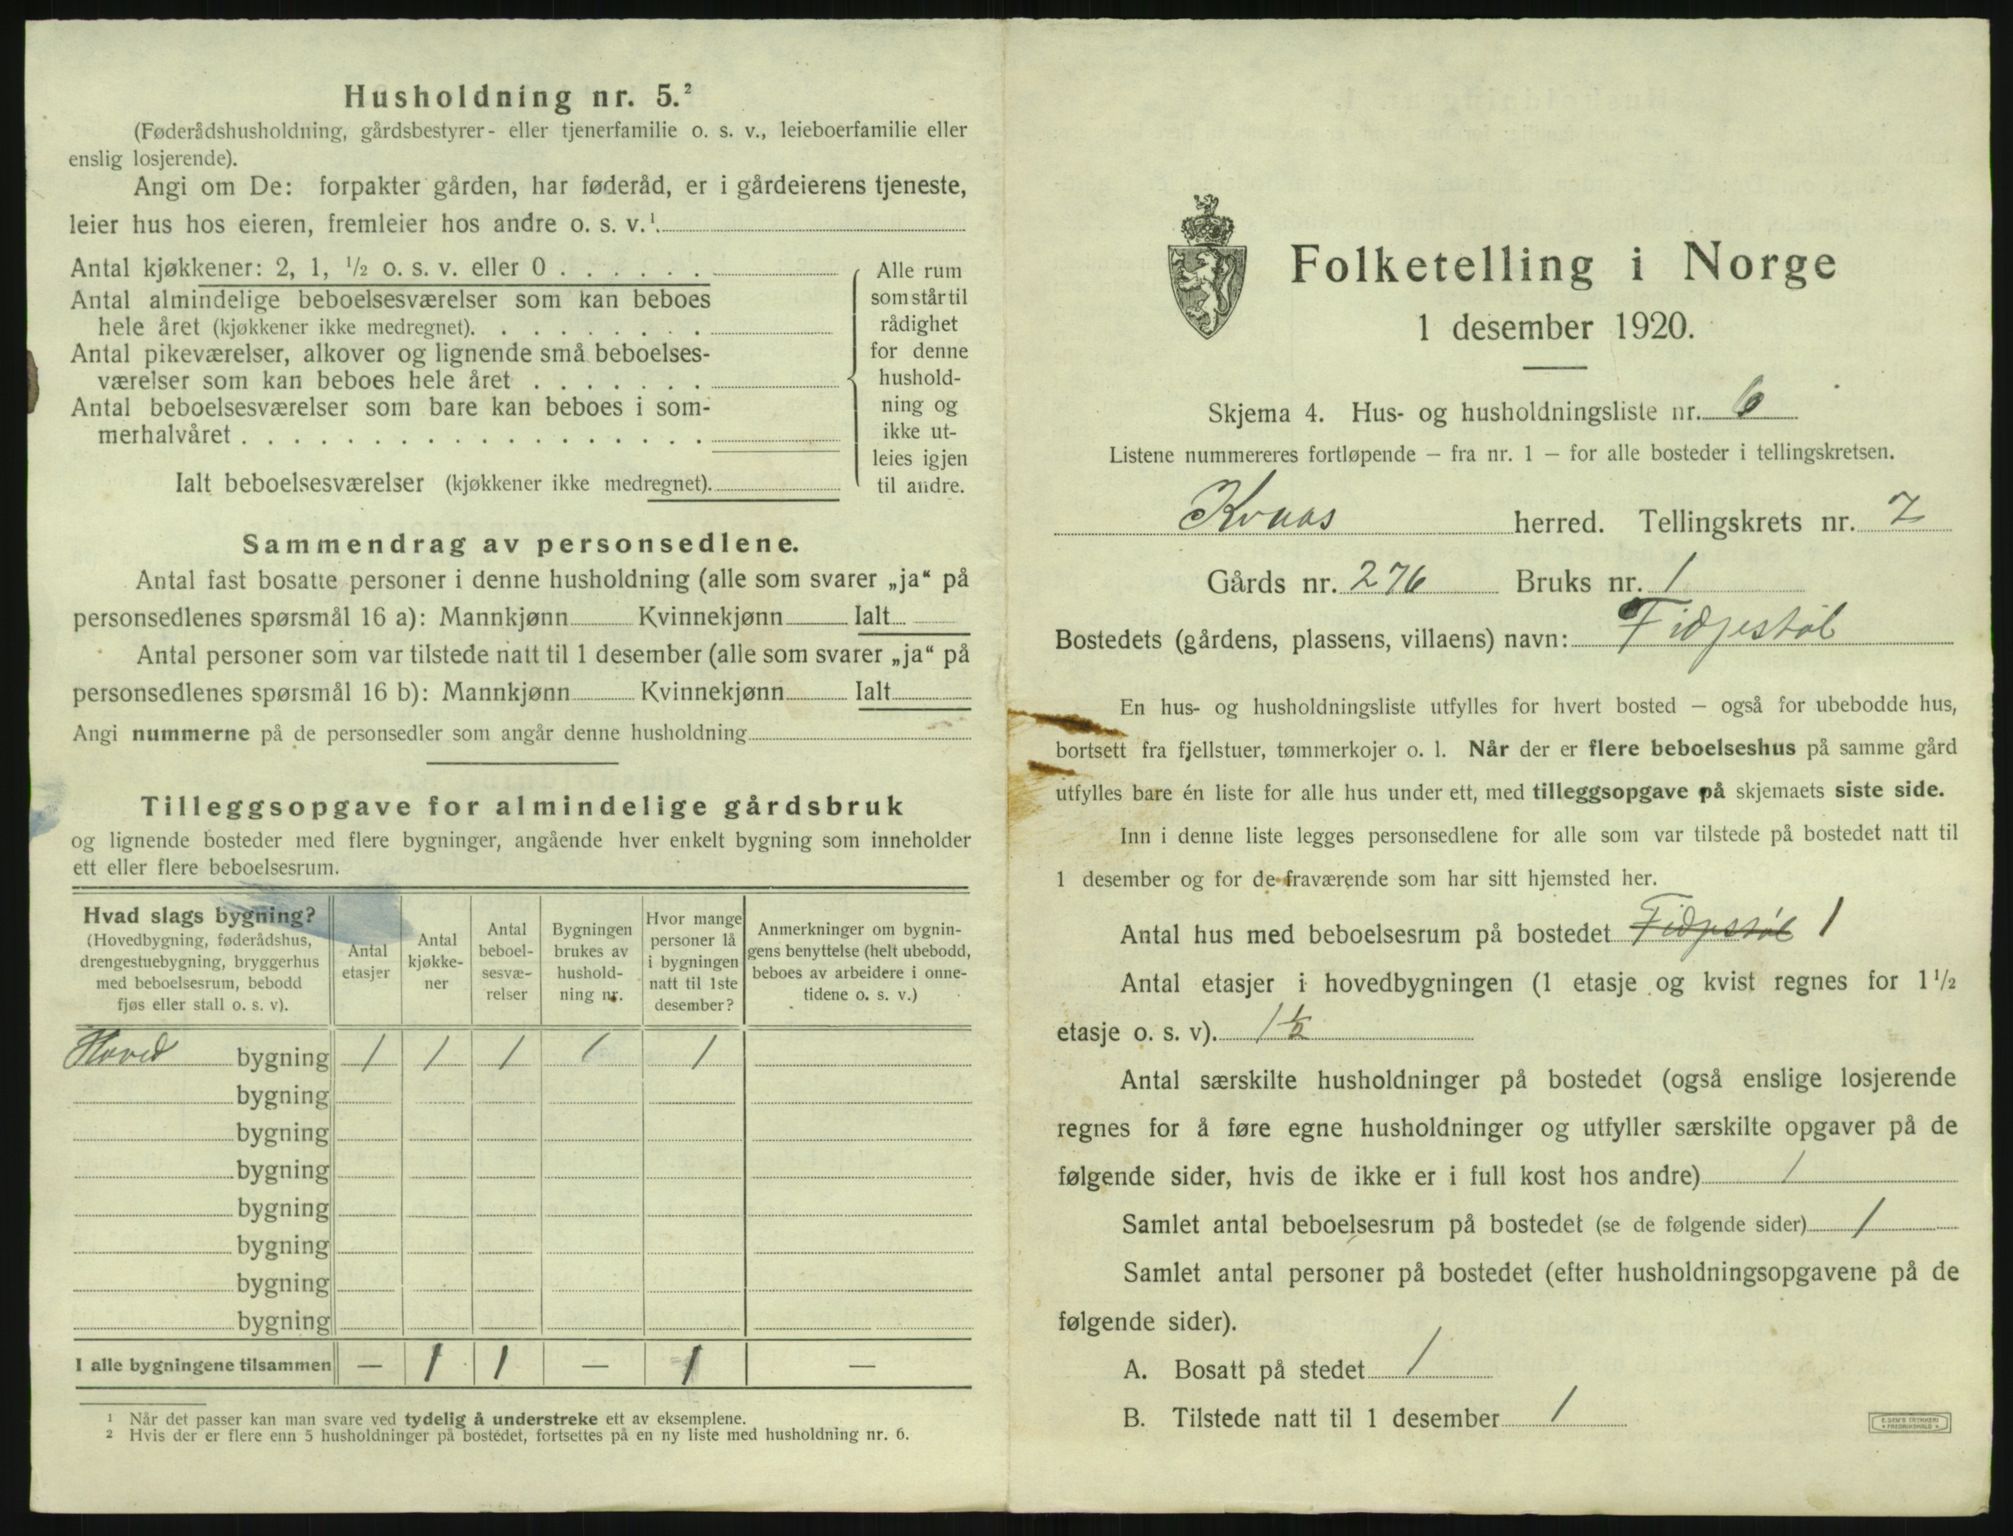 Husholdning nr. 5.²
(Føderådshusholdning, gårdsbestyrer- eller tjenerfamilie o. s. v., leieboerfamilie eller
enslig losjerende).
Angi om De: forpakter gården, har føderåd, er i gårdeierens tjeneste,
leier hus hos eieren, fremleier hos andre o. s. v.¹
Antal kjøkkener: 2, 1, ½ o. s. v. eller 0 . . . . . .
Antal almindelige beboelsesværelser som kan beboes
hele året (kjøkkener ikke medregnet). . . . . . . . .
Antal pikeværelser, alkover og lignende små beboelses-
værelser som kan beboes hele året . . . . . . .
Antal beboelsesværelser som bare kan beboes i som-
merhalvåret . . . . . . . . . . . . . . . . . .
Ialt beboelsesværelser (kjøkkener ikke medregnet).
Alle rum
som står til
rådighet
for denne
hushold-
ning og
ikke ut-
leies igjen
til andre.
Sammendrag av personsedlene.
Antal fast bosatte personer i denne husholdning (alle som svarer „ja“ på
personsedlenes spørsmål 16 a): Mannkjønn Kvinnekjønn Ialt
Antal personer som var tilstede natt til 1 desember (alle som svarer „ja“ på
personsedlenes spørsmål 16 b): Mannkjønn Kvinnekjønn Ialt
Angi nummerne på de personsedler som angår denne husholdning
Tilleggsopgave for almindelige gårdsbruk
og lignende bosteder med flere bygninger, angående hver enkelt bygning som inneholder
ett eller flere beboelsesrum.
Hvad slags bygning?
(Hovedbygning, føderådshus,
drengestuebygning, bryggerhus
med beboelsesrum, bebodd
fjøs eller stall o. s. v).
Antal
etasjer
Antal
kjøkke-
ner
Antal
beboel-
sesvæ-
relser
Bygningen
brukes av
hushold-
ning nr.
Hvor mange
personer lå
i bygningen
natt til 1ste
desember?
Anmerkninger om bygnin-
gens benyttelse (helt ubebodd,
beboes av arbeidere i onne-
tidene o. s. v.)
Hoved bygning 1 1 1 1 1
bygning
bygning
bygning
bygning
bygning
bygning
bygning
I alle bygningene tilsammen — 1 1 — 1 —
¹ Når det passer kan man svare ved tydelig å understreke ett av eksemplene.
² Hvis der er flere enn 5 husholdninger på bostedet, fortsettes på en ny liste med husholdning nr. 6.
Folketelling i Norge
1 desember 1920.
Skjema 4. Hus- og husholdningsliste nr. 6
Listene nummereres fortløpende — fra nr. 1 — for alle bosteder i tellingskretsen.
Kvaas herred. Tellingskrets nr. 7
Gårds nr. 276 Bruks nr. 1
Bostedets (gårdens, plassens, villaens) navn: Fidjestøl
En hus- og husholdningsliste utfylles for hvert bosted — også for ubebodde hus,
bortsett fra fjellstuer, tømmerkojer o. l. Når der er flere beboelseshus på samme gård
utfylles bare én liste for alle hus under ett, med tilleggsopgave på skjemaets siste side.
Inn i denne liste legges personsedlene for alle som var tilstede på bostedet natt til
1 desember og for de fraværende som har sitt hjemsted her.
Antal hus med beboelsesrum på bostedet Fidjestøl 1
Antal etasjer i hovedbygningen (1 etasje og kvist regnes for 1½
etasje o. s. v). 1½
Antal særskilte husholdninger på bostedet (også enslige losjerende
regnes for å føre egne husholdninger og utfyller særskilte opgaver på de
følgende sider, hvis de ikke er i full kost hos andre) 1
Samlet antal beboelsesrum på bostedet (se de følgende sider) 1
Samlet antal personer på bostedet (efter husholdningsopgavene på de
følgende sider).
A. Bosatt på stedet 1
B. Tilstede natt til 1 desember 1